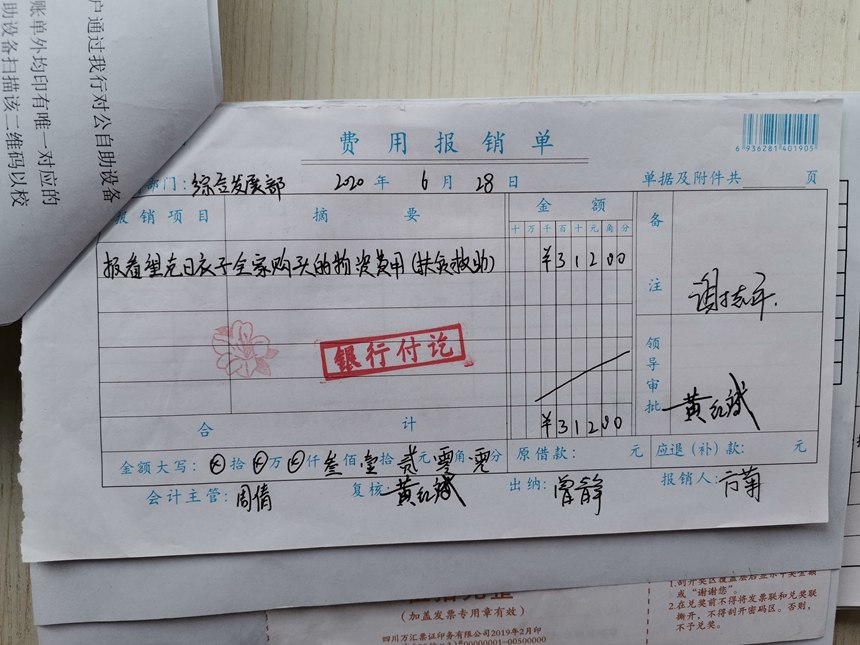 户通过我行对公自助设备
账单外均印有唯一对应的
助设备扫描该二维码以校
费用报销单
6 936281 401905
部门：综合发展部 2020 年 6 月 28 日 单据及附件共 页
报销项目 摘要 金额 备注
十 万 千 百 十 元 角 分
报着望克日衣子全家购买的物资费用（扶贫救助） ¥31200
谢志军.
银行付讫
领导审批 黄红斌
合计 ¥31200
金额大写：⊗拾⊗万⊗仟叁佰壹拾贰元零角零分 原借款： 元 应退（补）款： 元
会计主管：周倩 复核：黄红斌 出纳：曾静 报销人：方菊
（加盖发票专用章有效）
四川万汇票证印务有限公司2019年2月印
00000001-00500000
1.刮开奖区覆盖层后显示中奖金额
或“谢谢您”。
2.在兑奖前不得将发票联和兑奖联
撕开，不得刮开密码区。否则，
不予兑奖。